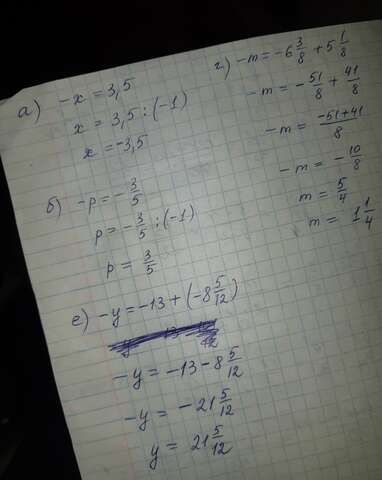 а) -x = 3,5
x = 3,5 : (-1)
x = -3,5
б) -p = -3/5
p = -3/5 : (-1)
p = 3/5
е) -y = -13 + (-8 5/12)
-y = -13 - 8 5/12
-y = -21 5/12
y = 21 5/12
г) -m = -6 3/8 + 5 1/8
-m = -51/8 + 41/8
-m = (-51+41)/8
-m = -10/8
m = 5/4
m = 1 1/4